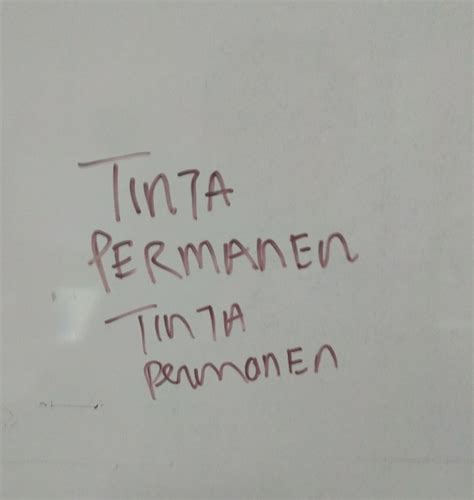 TINTA
PERMANEN
TINTA
permanEn